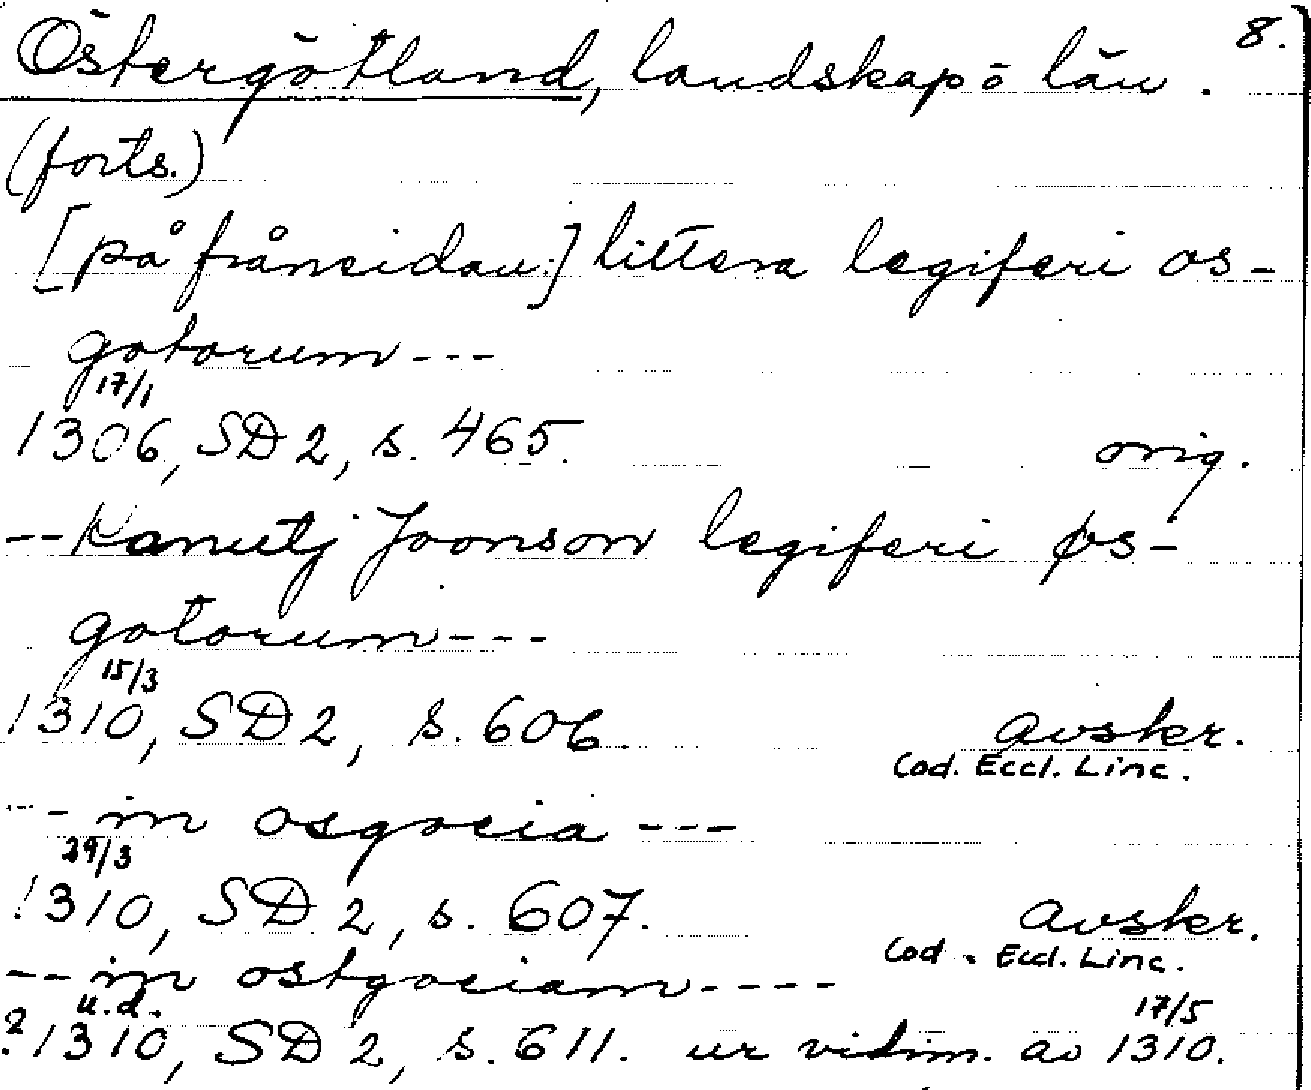 8.
Östergötland, landskap o län.
(forts.)
[på frånsidan:] littera legiferi os-
gotorum ---
17/1
1306, SD 2, s. 465. orig.
-- Kanutj Joonson legiferi øs-
gotorum ---
15/3
1310, SD 2, s. 606 avskr.
Cod. Eccl. Linc.
--- in osgocia ---
29/3
1310, SD 2, s. 607. avskr.
Cod. Eccl. Linc.
-- in ostgociam ----
u.d. 17/5
?1310, SD 2, s. 611. ur vidim. av 1310.